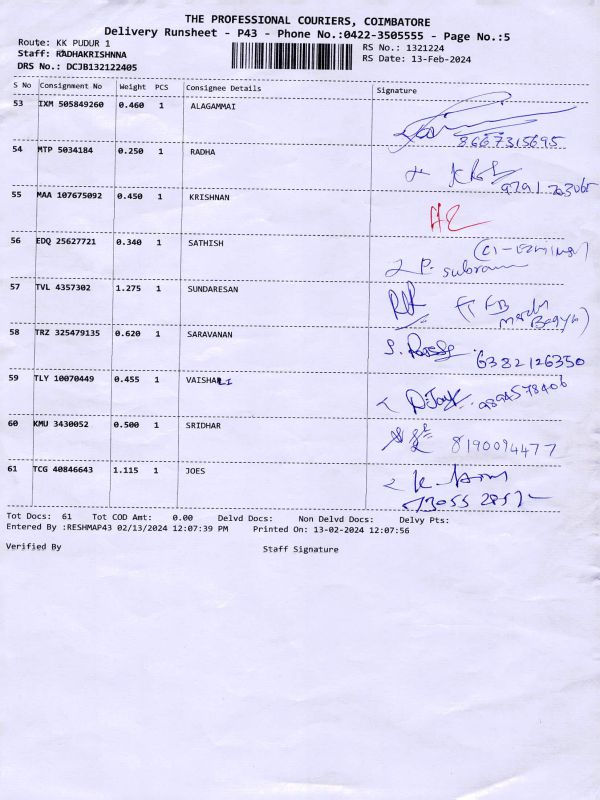 THE PROFESSIONAL COURIERS, COIMBATORE
Delivery Runsheet - P43 - Phone No.:0422-3505555 - Page No.:5
Route: KK PUDUR 1
RS No.: 1321224
Staff: RADHAKRISHNNA
RS Date: 13-Feb-2024
DRS No.: DCJB132122405
S No Consignment No Weight PCS Consignee Details Signature
53 IXM 505849260 0.460 1 ALAGAMMAI
8667315695
54 MTP 5034184 0.250 1 RADHA
55 MAA 107675092 0.450 1 KRISHNAN
56 EDQ 25627721 0.340 1 SATHISH
P. subram
57 TVL 4357302 1.275 1 SUNDARESAN
58 TRZ 325479135 0.620 1 SARAVANAN
6382126350
59 TLY 10070449 0.455 1 VAISHALI
9894578406
60 KMU 3430052 0.500 1 SRIDHAR
8190094477
61 TCG 40846643 1.115 1 JOES
Tot Docs: 61 Tot COD Amt: 0.00 Delvd Docs: Non Delvd Docs: Delvy Pts:
Entered By :RESHMAP43 02/13/2024 12:07:39 PM Printed On: 13-02-2024 12:07:56
Verified By Staff Signature